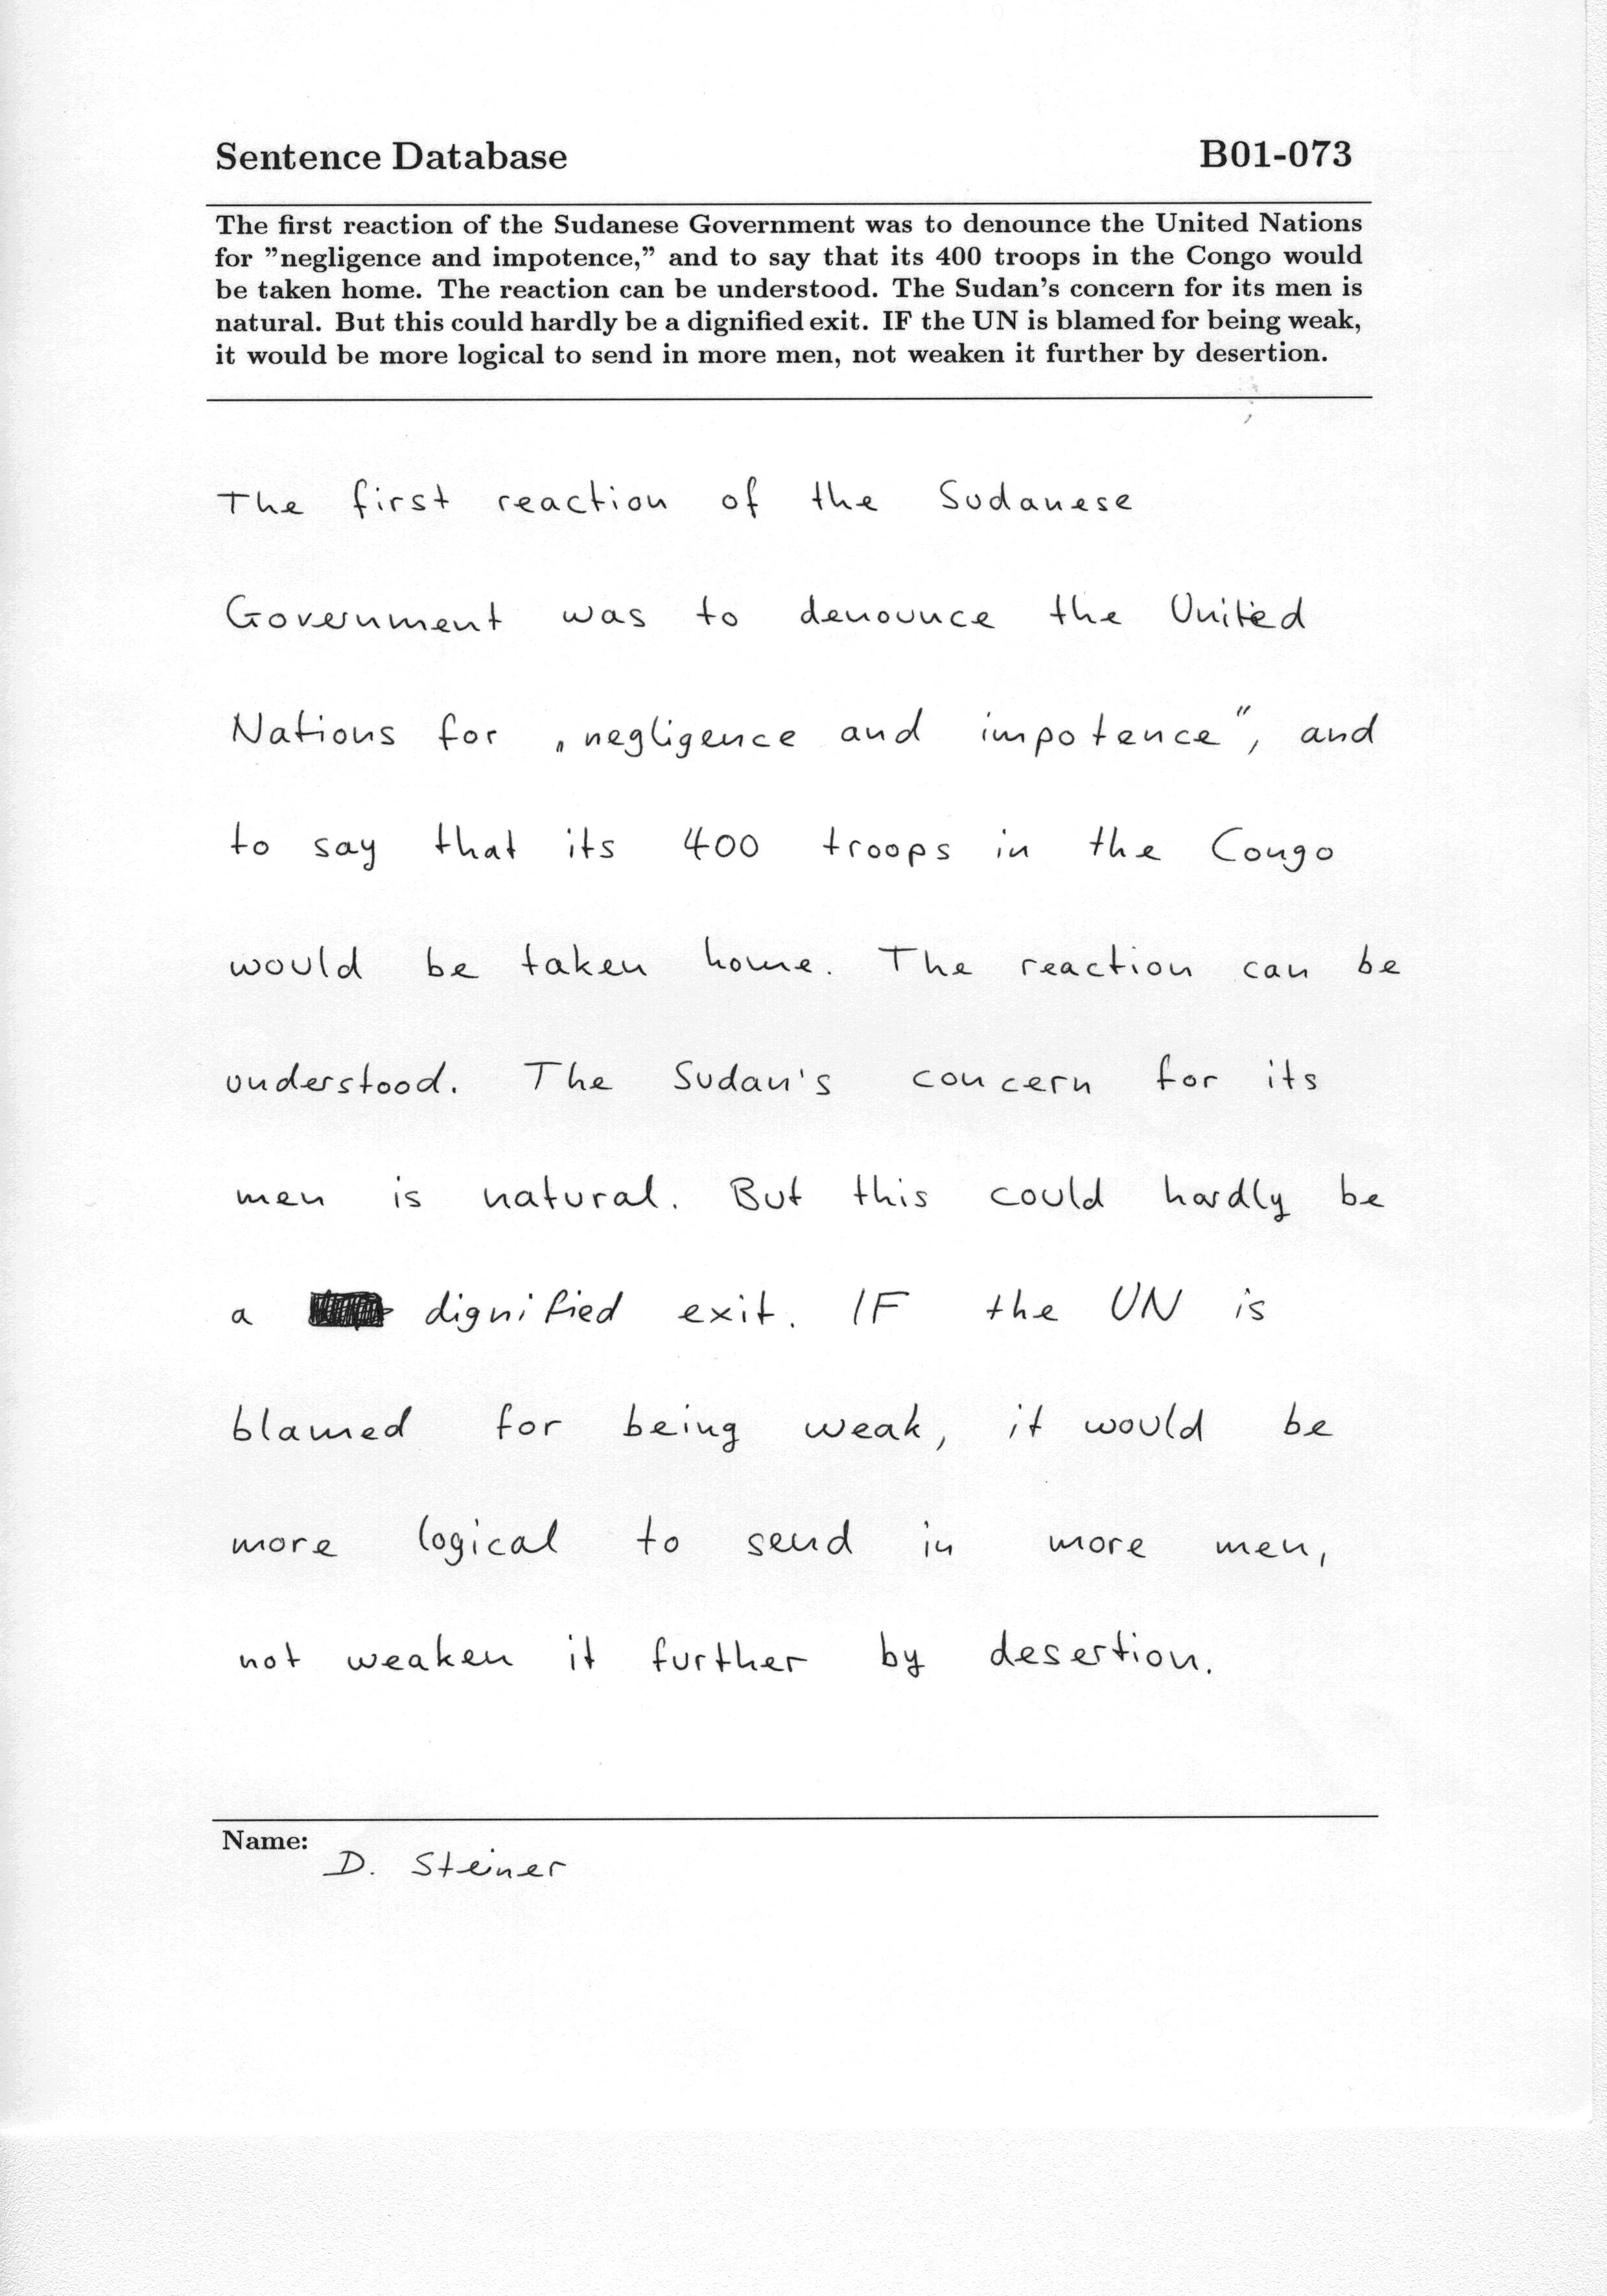 Sentence Database B01-073
The first reaction of the Sudanese Government was to denounce the United Nations
for ”negligence and impotence,” and to say that its 400 troops in the Congo would
be taken home. The reaction can be understood. The Sudan's concern for its men is
natural. But this could hardly be a dignified exit. IF the UN is blamed for being weak,
it would be more logical to send in more men, not weaken it further by desertion.
The first reaction of the Sudanese
Government was to denounce the United
Nations for „negligence and impotence”, and
to say that its 400 troops in the Congo
would be taken home. The reaction can be
understood. The Sudan's concern for its
men is natural. But this could hardly be
a dignified exit. IF the UN is
blamed for being weak, it would be
more logical to send in more men,
not weaken it further by desertion.
Name: D. Steiner